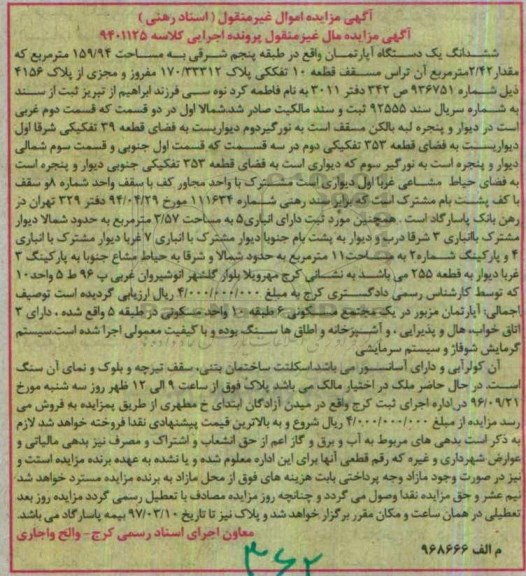 آگهی مزایده اموال غیرمنقول (اسناد رهنی)
آگهی مزایده مال غیرمنقول پرونده اجرایی کلاسه ۹۴۰۱۱۲۵
ششدانگ یک دستگاه آپارتمان واقع در طبقه پنجم شرقی به مساحت ۱۵۹/۹۴ مترمربع که
مقدار ۲/۴۲مترمربع آن تراس مسقف قطعه ۱۰ تفکیکی پلاک ۱۷۰/۳۳۳۱۲ مفروز و مجزی از پلاک ۴۱۵۶
ذیل شماره ۹۳۶۷۵۱ ص ۳۴۲ دفتر ۳۰۱۱ به نام فاطمه کرد نوه سی فرزند ابراهیم از تبریز ثبت از سند
به شماره سریال سند ۹۲۵۵۵ ثبت و سند مالکیت صادر شد شمالا اول در دو قسمت که قسمت دوم غربی
است در دیوار و پنجره لبه بالکن مسقف است به نورگیردوم دیواریست به فضای قطعه ۳۹ تفکیکی شرقا اول
دیواریست به فضای قطعه ۳۵۳ تفکیکی دوم در سه قسمت که قسمت اول جنوبی و قسمت سوم شمالی
دیوار و پنجره است به نورگیر سوم که دیواری است به فضای قطعه ۳۵۳ تفکیکی جنوبی دیوار و پنجره است
به فضای حیاط مشاعی غربا اول دیواری است مشترک با واحد مجاور کف با سقف واحد شماره ۸و سقف
با کف پشت بام مشترک است که برابر سند رهنی شماره ۱۱۱۶۳۴ مورخ ۹۴/۰۴/۲۹ دفتر ۳۲۹ تهران در
رهن بانک پاسارگاد است. همچنین مورد ثبت دارای انباری۵ به مساحت ۳/۵۷ مترمربع به حدود شمالا دیوار
مشترک باانباری ۳ شرقا درب و دیوار به پشت بام جنوبا دیوار مشترک با انباری ۷ غربا دیوار مشترک با انباری
۴ و پارکینگ شماره۲ به مساحت۱۱ مترمربع به حدود شمالا و شرقا به حیاط مشاع جنوبا به پارکینگ ۳
غربا دیوار به قطعه ۲۵۵ می باشد به نشانی کرج مهرویلا بلوار گلشهر انوشیروان غربی پ ۹۶ ط ۵ واحد۱۰
که توسط کارشناس رسمی دادگستری کرج به مبلغ ۴/۰۰۰/۰۰۰/۰۰۰ ریال ارزیابی گردیده است توصیف
اجمالی: آپارتمان مزبور در یک مجتمع مسکونی ۶ طبقه ۱۰ واحد مسکونی در طبقه ۵ واقع شده ، دارای ۳
اتاق خواب، هال و پذیرایی ، و آشپزخانه و اطاق ها سنگ بوده و با کیفیت معمولی اجرا شده است.سیستم
گرمایش شوفاژ و سیستم سرمایشی
آن کولرآبی و دارای آسانسور می باشد.اسکلت ساختمان بتنی، سقف تیرچه و بلوک و نمای آن سنگ
است، در حال حاضر ملک در اختیار مالک می باشد پلاک فوق از ساعت ۹ الی ۱۲ ظهر روز سه شنبه مورخ
۹۶/۰۹/۲۱ در اداره اجرای ثبت کرج واقع در میدن آزادگان ابتدای خ مطهری از طریق بمزایده به فروش می
رسد مزایده از مبلغ ۴/۰۰۰/۰۰۰/۰۰۰ ریال شروع و به بالاترین قیمت پیشنهادی نقدا فروخته خواهد شد لازم
به ذکر است بدهی های مربوط به آب و برق و گاز اعم از حق انشعاب و اشتراک و مصرف نیز بدهی مالیاتی و
عوارض شهرداری و غیره که رقم قطعی آنها برای این اداره معلوم شده و یا نشده به عهده برنده مزایده استت و
نیز در صورت وجود مازاد وجه پرداختی بابت هزینه های فوق از محل مازاد به برنده مزایده مسترد خواهد شد
نیم عشر و حق مزایده نقدا وصول می گردد و چنانچه روز مزایده مصادف با تعطیل رسمی گردد مزایده روز بعد
تعطیلی در همان ساعت و مکان مقرر برگزار خواهد شد و پلاک نیز تا تاریخ ۹۷/۰۳/۱۰ بیمه پاسارگاد می باشد.
معاون اجرای اسناد رسمی کرج- واثح واجاری
م الف ۹۶۸۶۶۶
۳۶۲